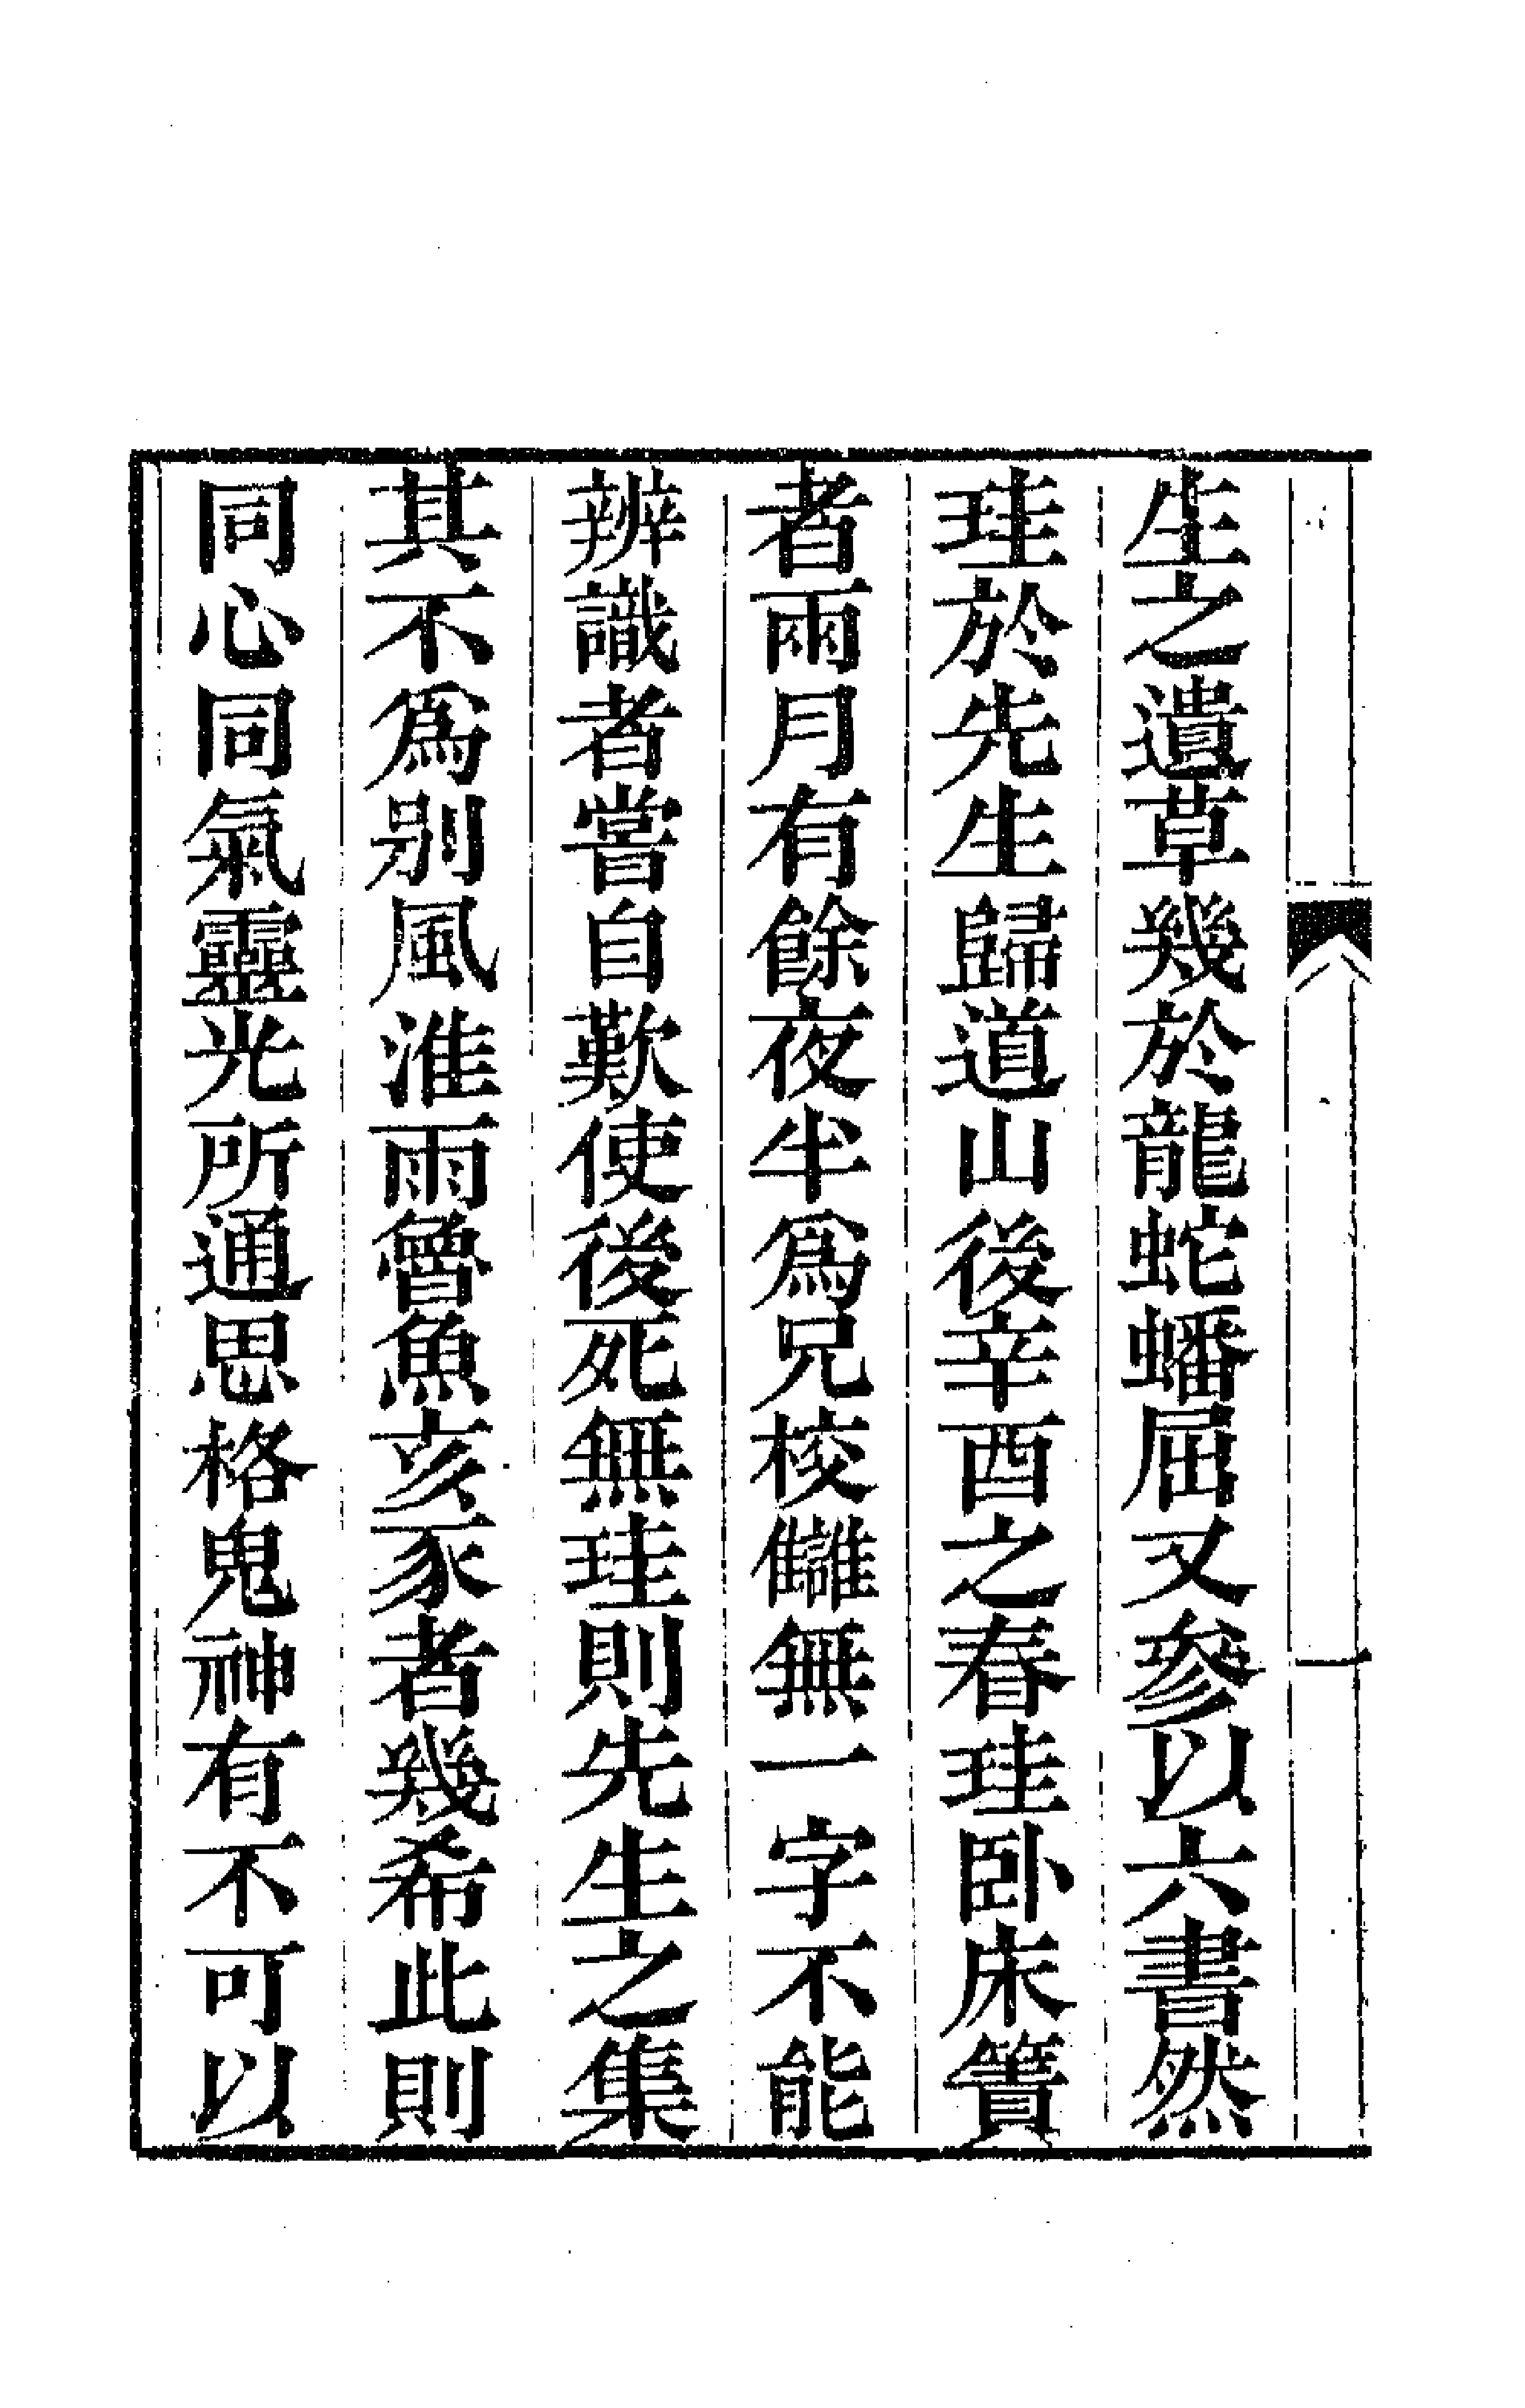 一
生之遺草幾於龍蛇蟠屈又參以六書然
珪於先生歸道山後辛酉之春珪卧床簀
者兩月有餘夜半爲兄校讎無一字不能
辨識者嘗自歎使後死無珪則先生之集
其不爲别風淮雨魯魚亥豕者幾希此則
同心同氣靈光所通思格鬼神有不可以